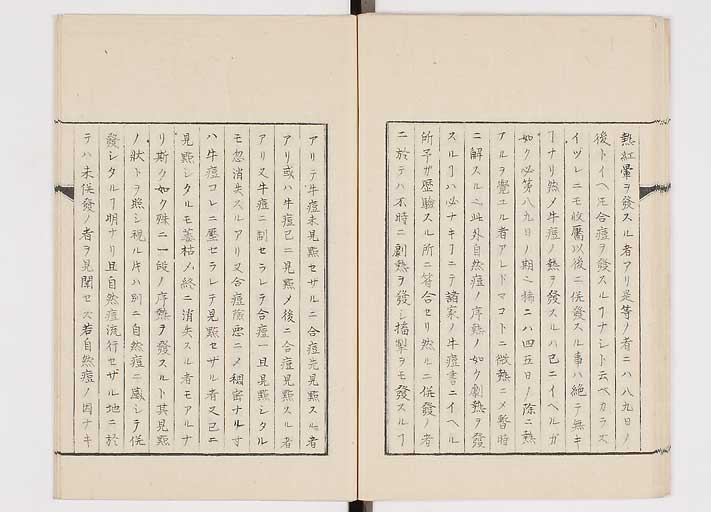 熱紅暈ヲ發スル者アリ是等ノ者ニハ八九日ノ
後トイヘ𪜈合痘ヲ發スルヿナシト云ベカラズ
イヅレニモ收靨以後ニ併發スル事ハ絶テ無キ
ヿナリ然メ牛痘ノ熱ヲ發スルハ已ニイヘルガ
如ク必第八九日ノ期之 ニハ四五日ノ際ニ熱
アルヲ覺ユル者アレドマコトニ微熱ニメ暫時
ニ解スル之此外自然痘ノ序熱ノ如ク劇熱ヲ發
スルヿハ必ナキヿニテ諸家ノ牛痘書ニイヘル
所予ガ歴驗スル所ニ符合セリ然ルニ併發ノ者
ニ於テハ不時ニ劇熱ヲ發シ搐掣ヲモ發スルヿ
アリテ牛痘未見點セザルニ合痘先見點スル者
アリ或ハ牛痘已ニ見點メ後ニ合痘見點スル者
アリ又牛痘ニ制セラレテ合痘一旦見點シタル
モ忽消失スルアリ又合痘險惡ニメ稠密ナル寸
ハ牛痘コレニ壓セラレテ見點セザル者又已ニ
見點シタルモ萎枯メ終ニ消失スル者モアルナ
リ斯ク如ク殊ニ一般ノ序熱ヲ發スルト其見點
ノ狀トヲ照シ視ル片ハ別ニ自然痘ニ感シテ併
發シタルヿ明ナリ且自然痘流行セザル地ニ於
テハ未併發ノ者ヲ見聞セズ若自然痘ノ因ナキ